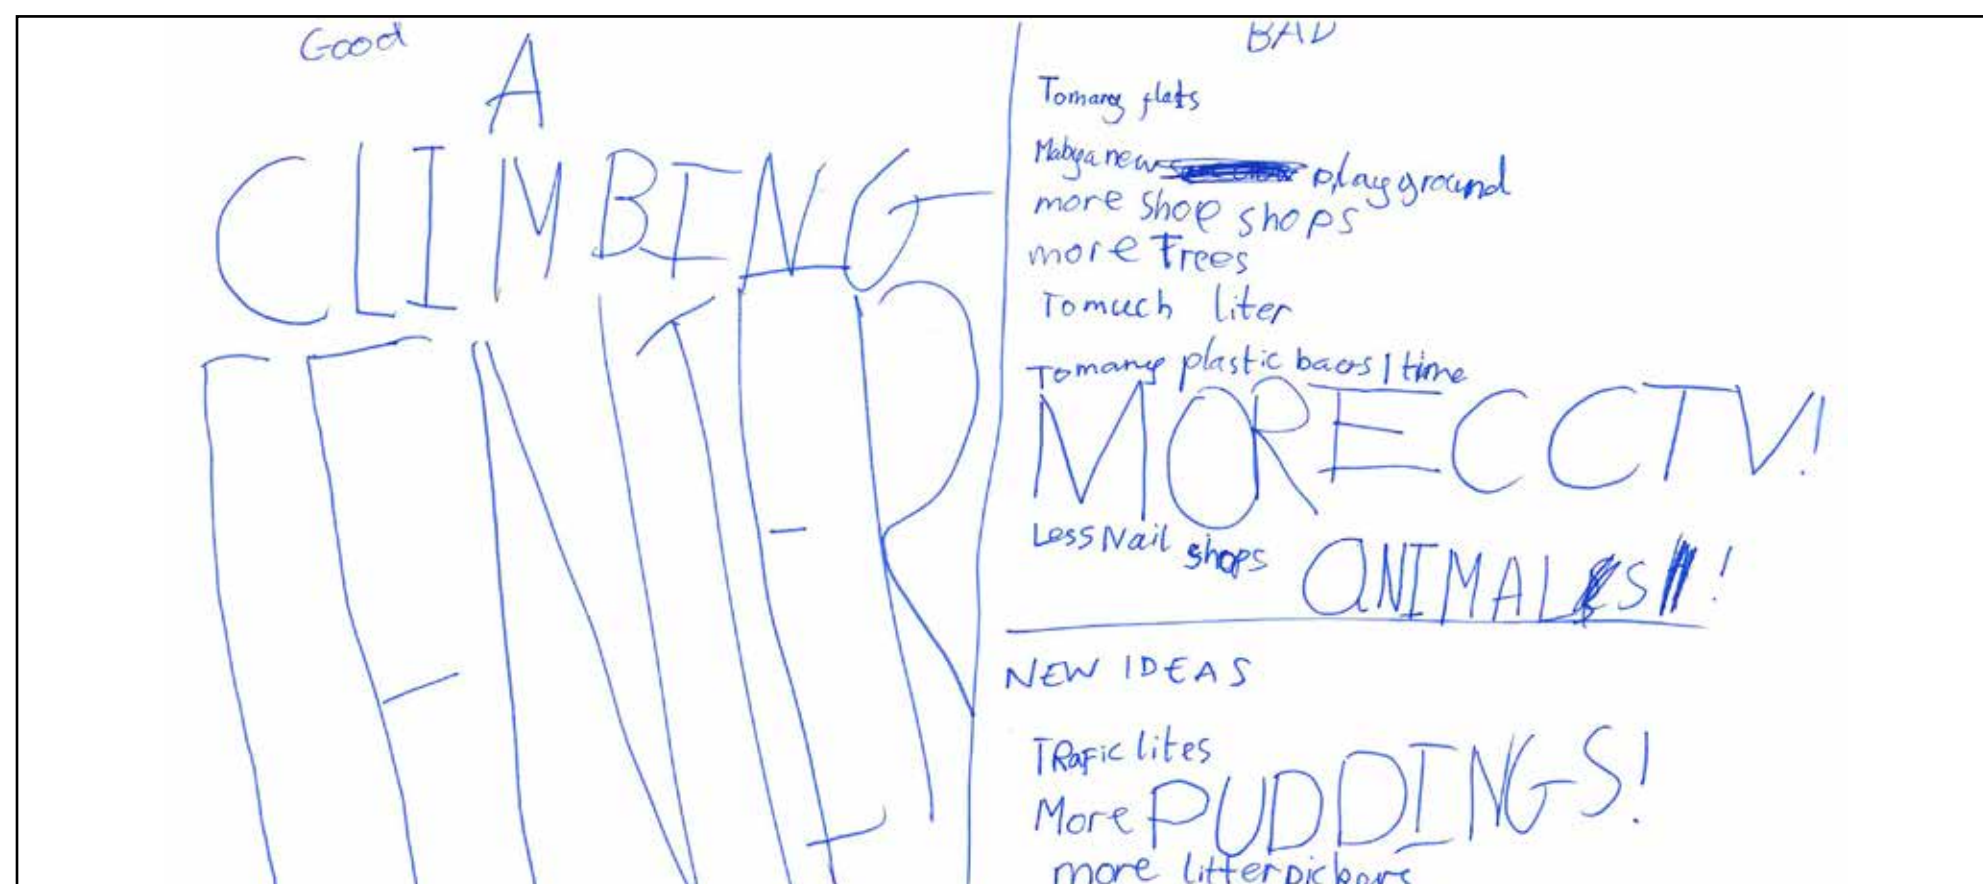 Good
A
CLIMBING
CENTER
BAD
Tomany flats
Mabya new playground
more shop shops
more Trees
Tomuch liter
Tomany plastic bags 1 time
MORE CCTV!
Less Nail shops
ANIMALS!
NEW IDEAS
TRafic lites
More PUDDINGS!
more litter pickers